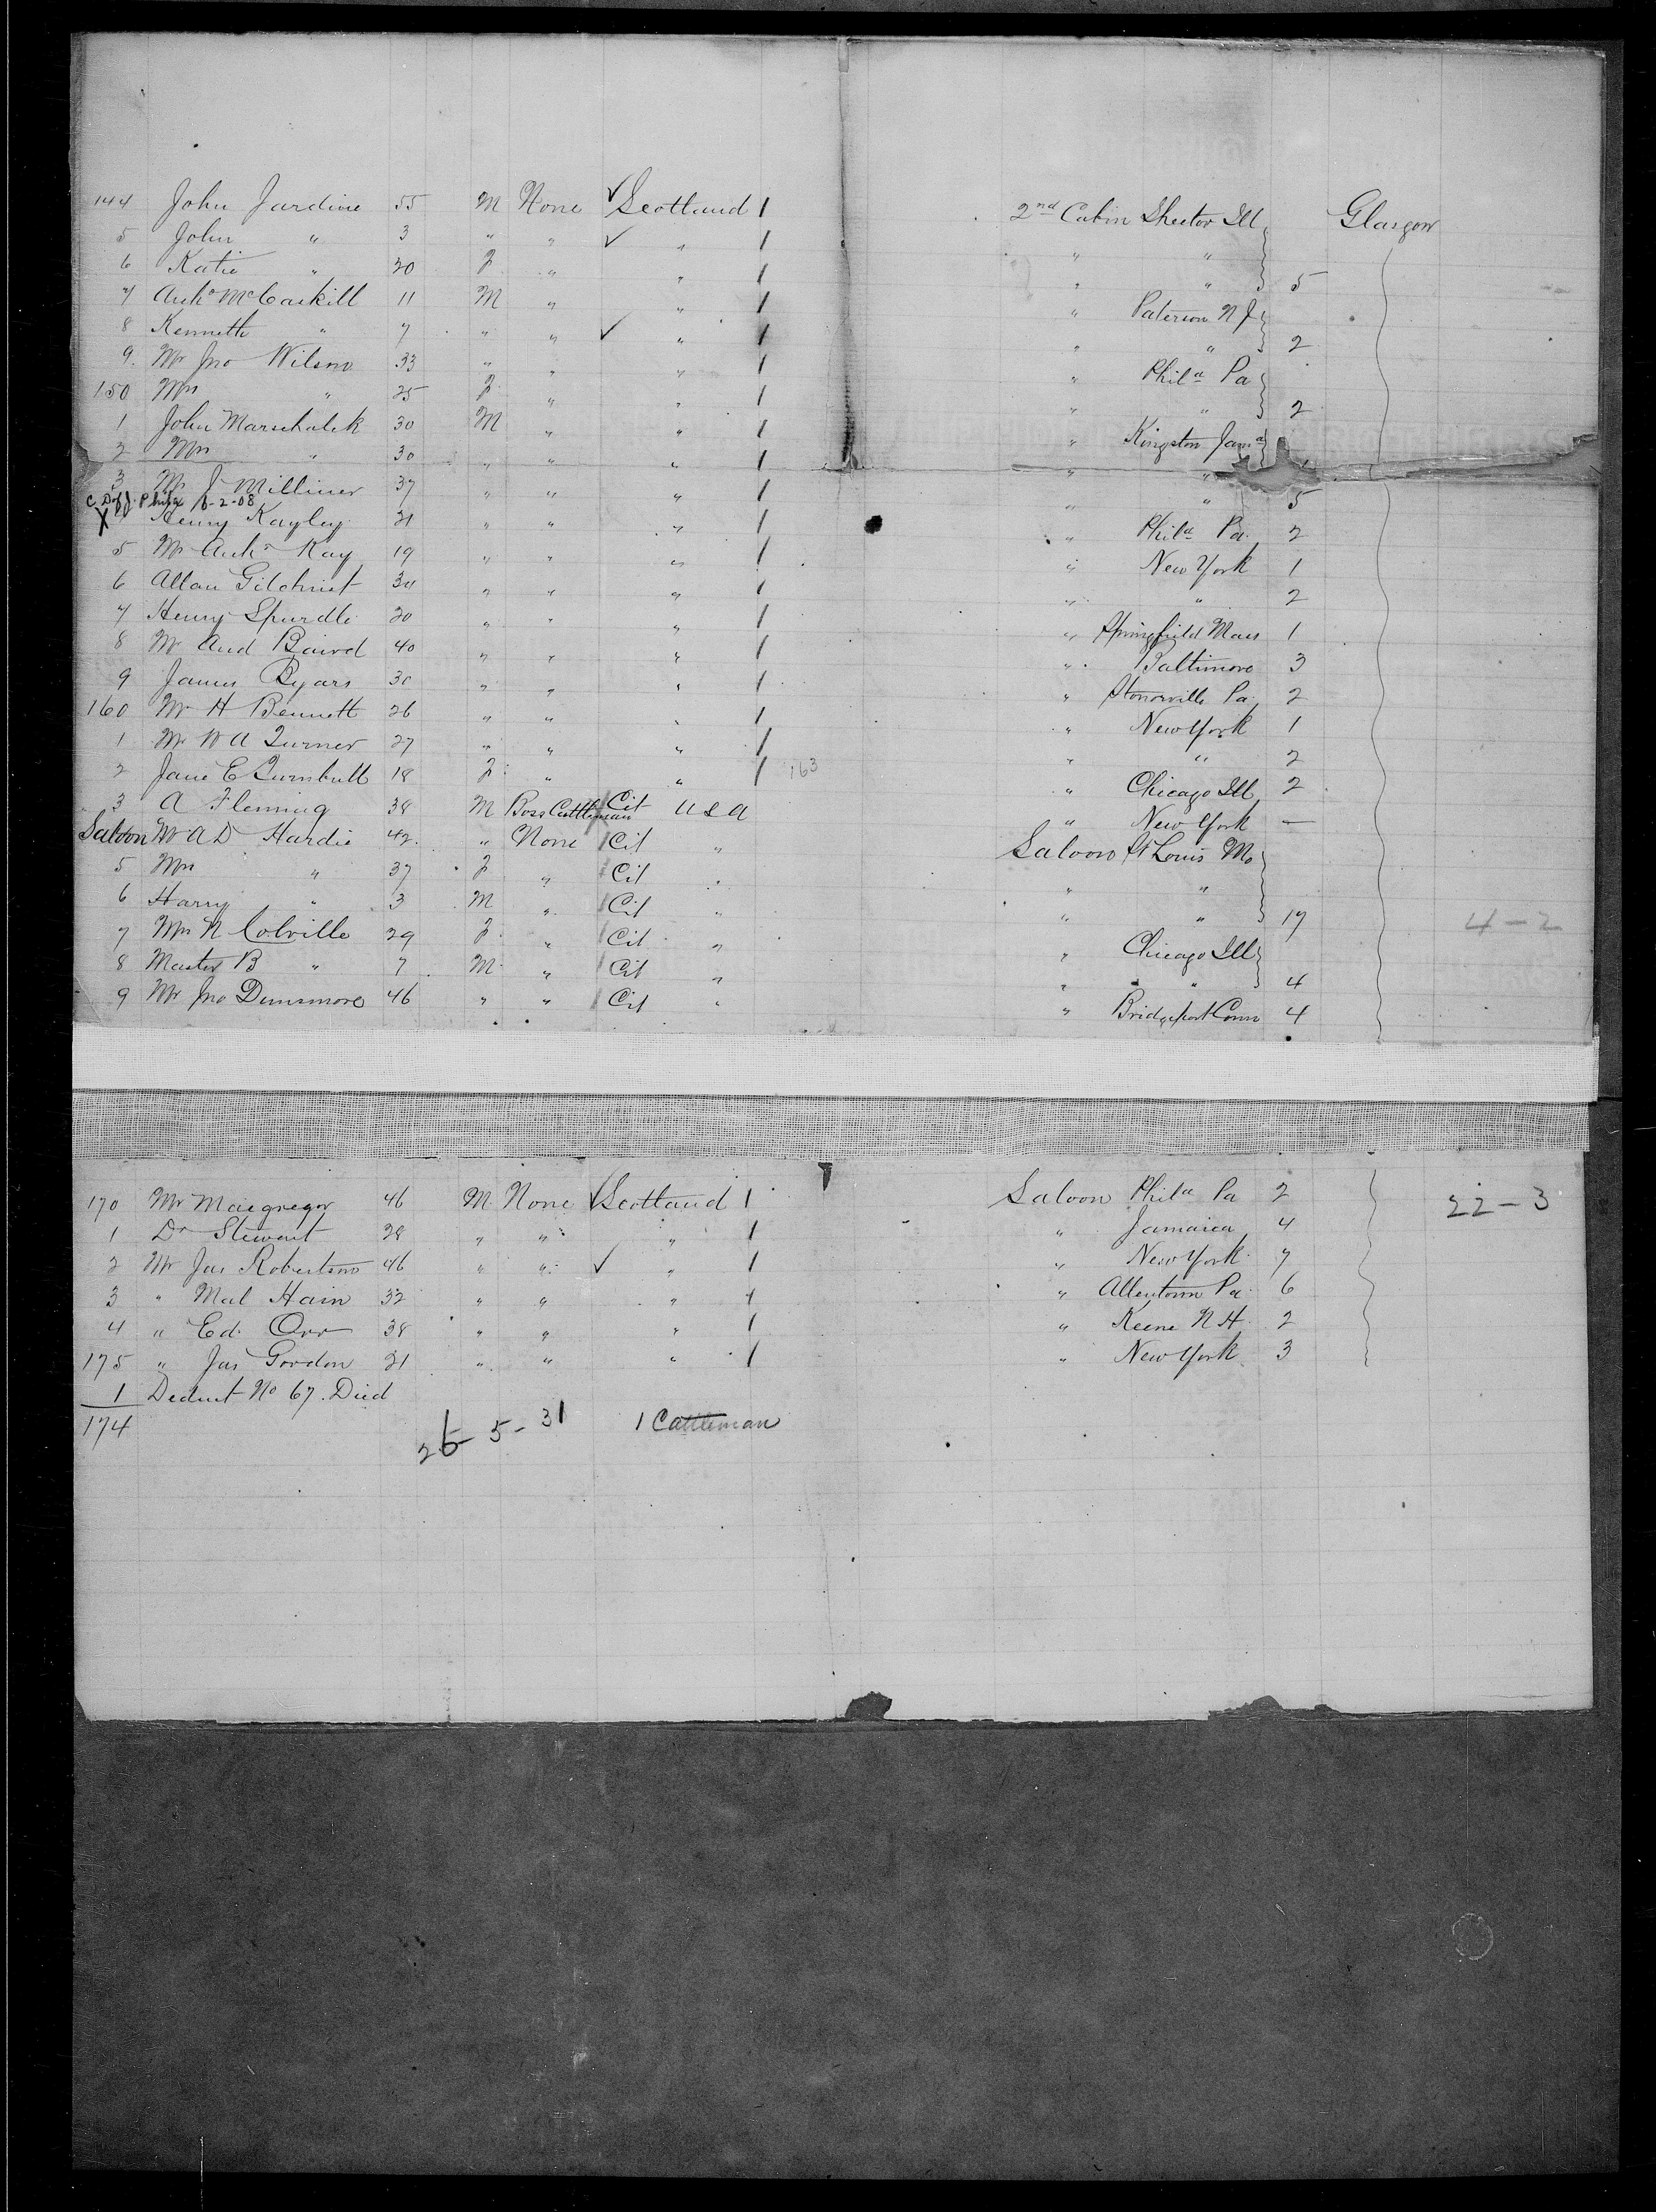 144 John Jardine 55 M None ✓ Scotland 1 2nd Cabin Shector Ill Glasgow
5 John " 3 " " ✓ " 1 " "
6 Katie " 20 F " " 1 " " 5
7 Archd McCaskill 11 M " " 1 " Paterson N J
8 Kenneth " 7 " " ✓ " 1 " " 2
9 Mr Jno Wilson 33 " " " 1 " Phila Pa
150 Mrs " 25 F " " 1 " " 2
1 John Marschalek 30 M " " 1 " Kingston Jama
2 Mrs " 30 " " " 1 " "
3 Mr J Milliner 37 " " " 1 " " 5
Phila 6-2-08
X Henry Kayley 21 " " " 1 " Phila Pa 2
5 Mr Archd Kay 19 " " " 1 " New York 1
6 Allan Gilchrist 34 " " " 1 " " 2
7 Henry Spurdle 20 " " " 1 " Springfield Mass 1
8 Mr And Baird 40 " " " 1 " Baltimore 3
9 James Byars 30 " " " 1 " Stonorville Pa 2
160 Mr H Bennett 26 " " " 1 " New York 1
1 Mr W A Turner 27 " " " 1 " " 2
2 Jane E Turnbull 18 F " " 1 163 " Chicago Ill 2
3 A Fleming 38 M Boss Cattleman Cit U S A " New York —
Saloon Mr A D Hardie 42 " None Cit " Saloon St Louis Mo
5 Mrs " 37 F " Cit " " "
6 Harry " 3 M " Cit " " " 17 4-2
7 Mrs N Colville 29 F " Cit " " Chicago Ill
8 Master B " 7 M " Cit " " " 4
9 Mr Jno Dunsmore 46 " " Cit " " Bridgeport Conn 4
170 Mr Macgregor 46 M None ✓ Scotland 1 Saloon Phila Pa 2 22-3
1 Dr Stewart 28 " " " 1 " Jamaica 4
2 Mr Jas Robertson 46 " " ✓ " 1 " New York 7
3 " Mal Hain 32 " " " 1 " Allentown Pa 6
4 " Ed. Orr 38 " " " 1 " Keene N H 2
175 " Jas Gordon 21 " " " 1 " New York 3
1 Deduct No 67. Died
174
26-5-31 1 Cattleman